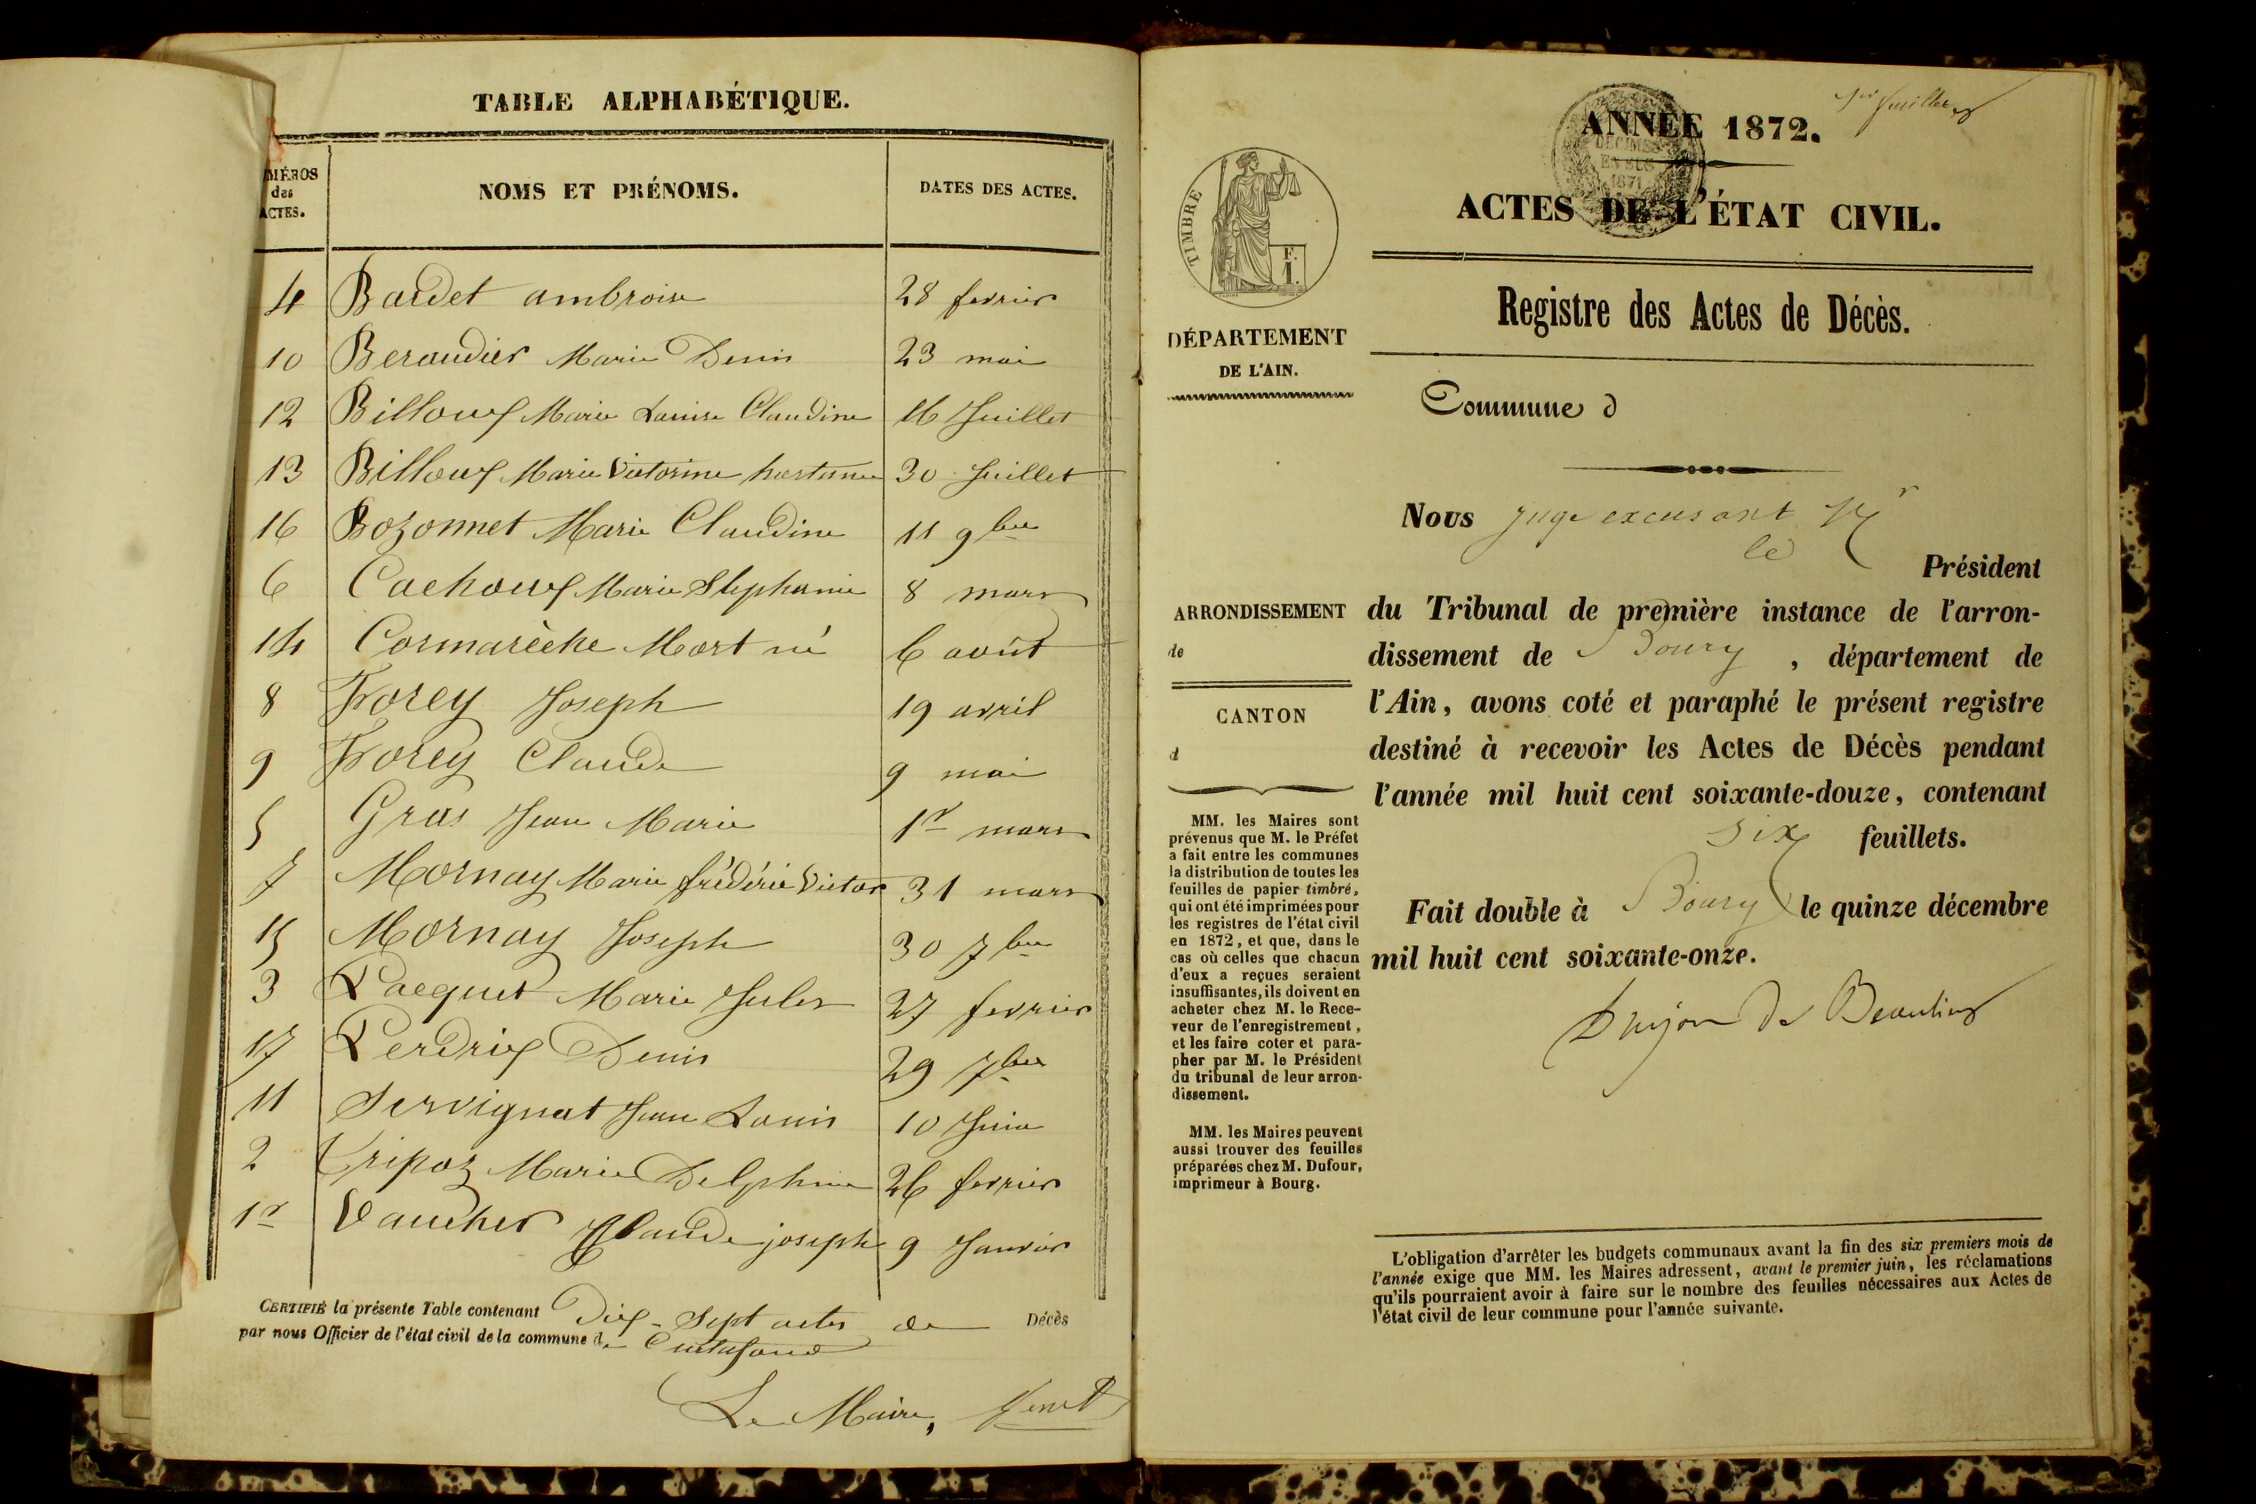 TABLE ALPHABÉTIQUE.
MÉROS
des
ACTES.
NOMS ET PRÉNOMS.
DATES DES ACTES.
4 Baudet ambroise 28 fevrier
10 Beraudier Marie Denis 23 mai
12 Billoux Marie Louise Claudine 16 Juillet
13 Billoux Marie Victorine 30 Juillet
16 Bozonnet Marie Claudine 11 9bre
6 Cachoux Marie Stephanie 8 mars
14 Cormarèche Mort né 6 août
8 Forey Joseph 19 avril
9 Forey Claude 9 mai
5 Gras Jean Marie 1r mars
7 Mornay Marie frédéric Victor 31 mars
15 Mornay Joseph 30 7bre
3 Pacquet Marie Jules 27 fevrier
17 Perdrix Denis 29 7bre
11 Servignat Jean Louis 10 Juin
2 Tripoz Marie Delphine 26 fevrier
1r Vaucher Claude joseph 9 Janvier
CERTIFIÉ la présente Table contenant Dix-Sept actes de Décès
par nous Officier de l'état civil de la commune de Curtafond
Le Maire,
1er feuillet
ANNÉE 1872.
DÉCIMES
EN SUS
1871
ACTES DE L'ÉTAT CIVIL.
TIMBRE
F.
1.
Registre des Actes de Décès.
DÉPARTEMENT
DE L'AIN.
Commune d
Nous juge excusant Mr
le Président
ARRONDISSEMENT
de
CANTON
d
du Tribunal de première instance de l'arron-
dissement de Bourg, département de
l'Ain, avons coté et paraphé le présent registre
destiné à recevoir les Actes de Décès pendant
l'année mil huit cent soixante-douze, contenant
six feuillets.
Fait double à Bourg le quinze décembre
mil huit cent soixante-onze.
MM. les Maires sont
prévenus que M. le Préfet
a fait entre les communes
la distribution de toutes les
feuilles de papier timbré,
qui ont été imprimées pour
les registres de l'état civil
en 1872, et que, dans le
cas où celles que chacun
d'eux a reçues seraient
insuffisantes, ils doivent en
acheter chez M. le Rece-
veur de l'enregistrement,
et les faire coter et para-
pher par M. le Président
du tribunal de leur arron-
dissement.
MM. les Maires peuvent
aussi trouver des feuilles
préparées chez M. Dufour,
imprimeur à Bourg.
de Beaulieu
L'obligation d'arrêter les budgets communaux avant la fin des six premiers mois de
l'année exige que MM. les Maires adressent, avant le premier juin, les réclamations
qu'ils pourraient avoir à faire sur le nombre des feuilles nécessaires aux Actes de
l'état civil de leur commune pour l'année suivante.